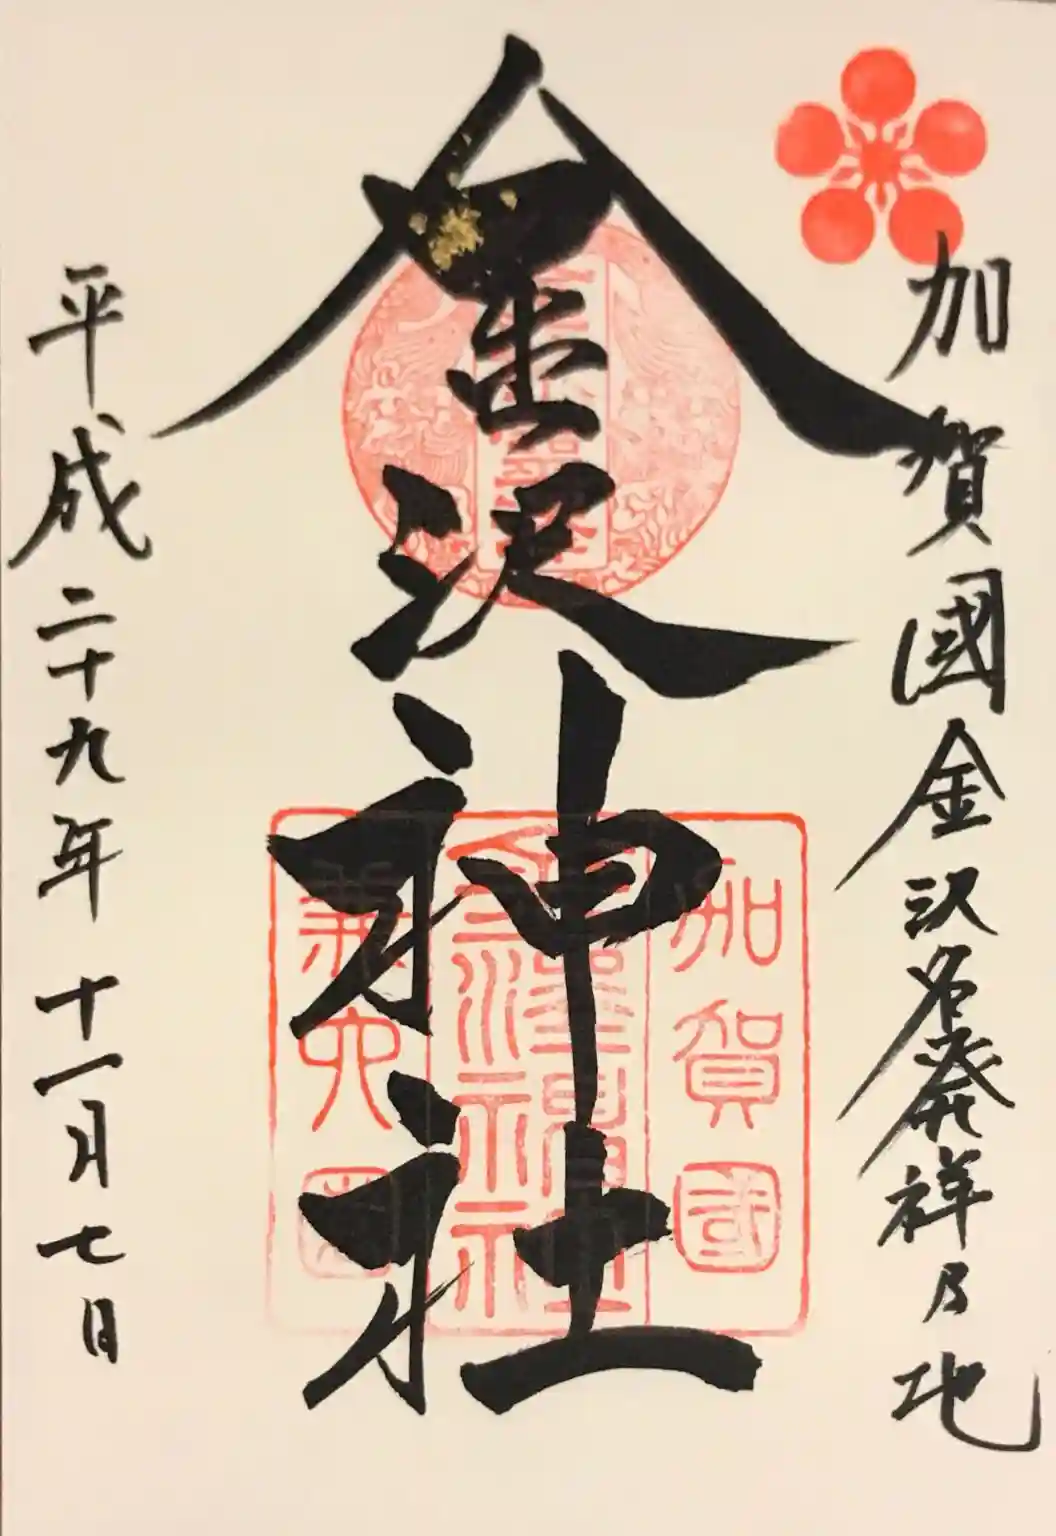 加賀國金沢名発祥乃地
金沢神社
平成二十九年十一月七日
加賀國
金澤神社
兼六園